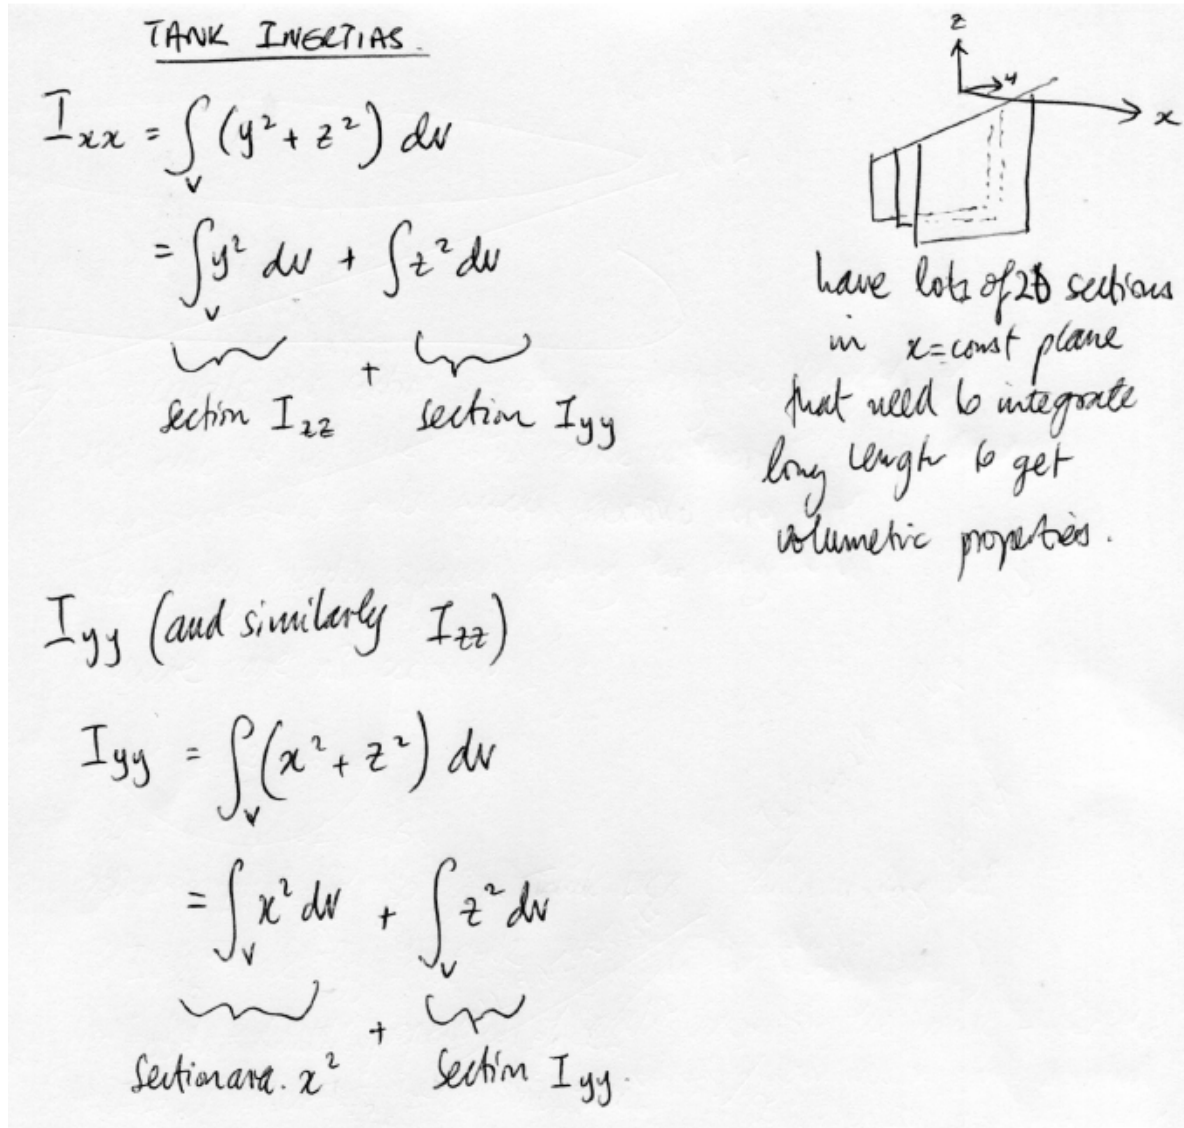 TANK INERTIAS.
I_xx = ∫_V (y² + z²) dv
= ∫_V y² dv + ∫ z² dv
section I_zz + section I_yy
z
y
x
have lots of 2D sections
in x=const plane
that need to integrate
long length to get
volumetric properties.
I_yy (and similarly I_zz)
I_yy = ∫_V (x² + z²) dv
= ∫_V x² dv + ∫_V z² dv
section area. x² + section I_yy.